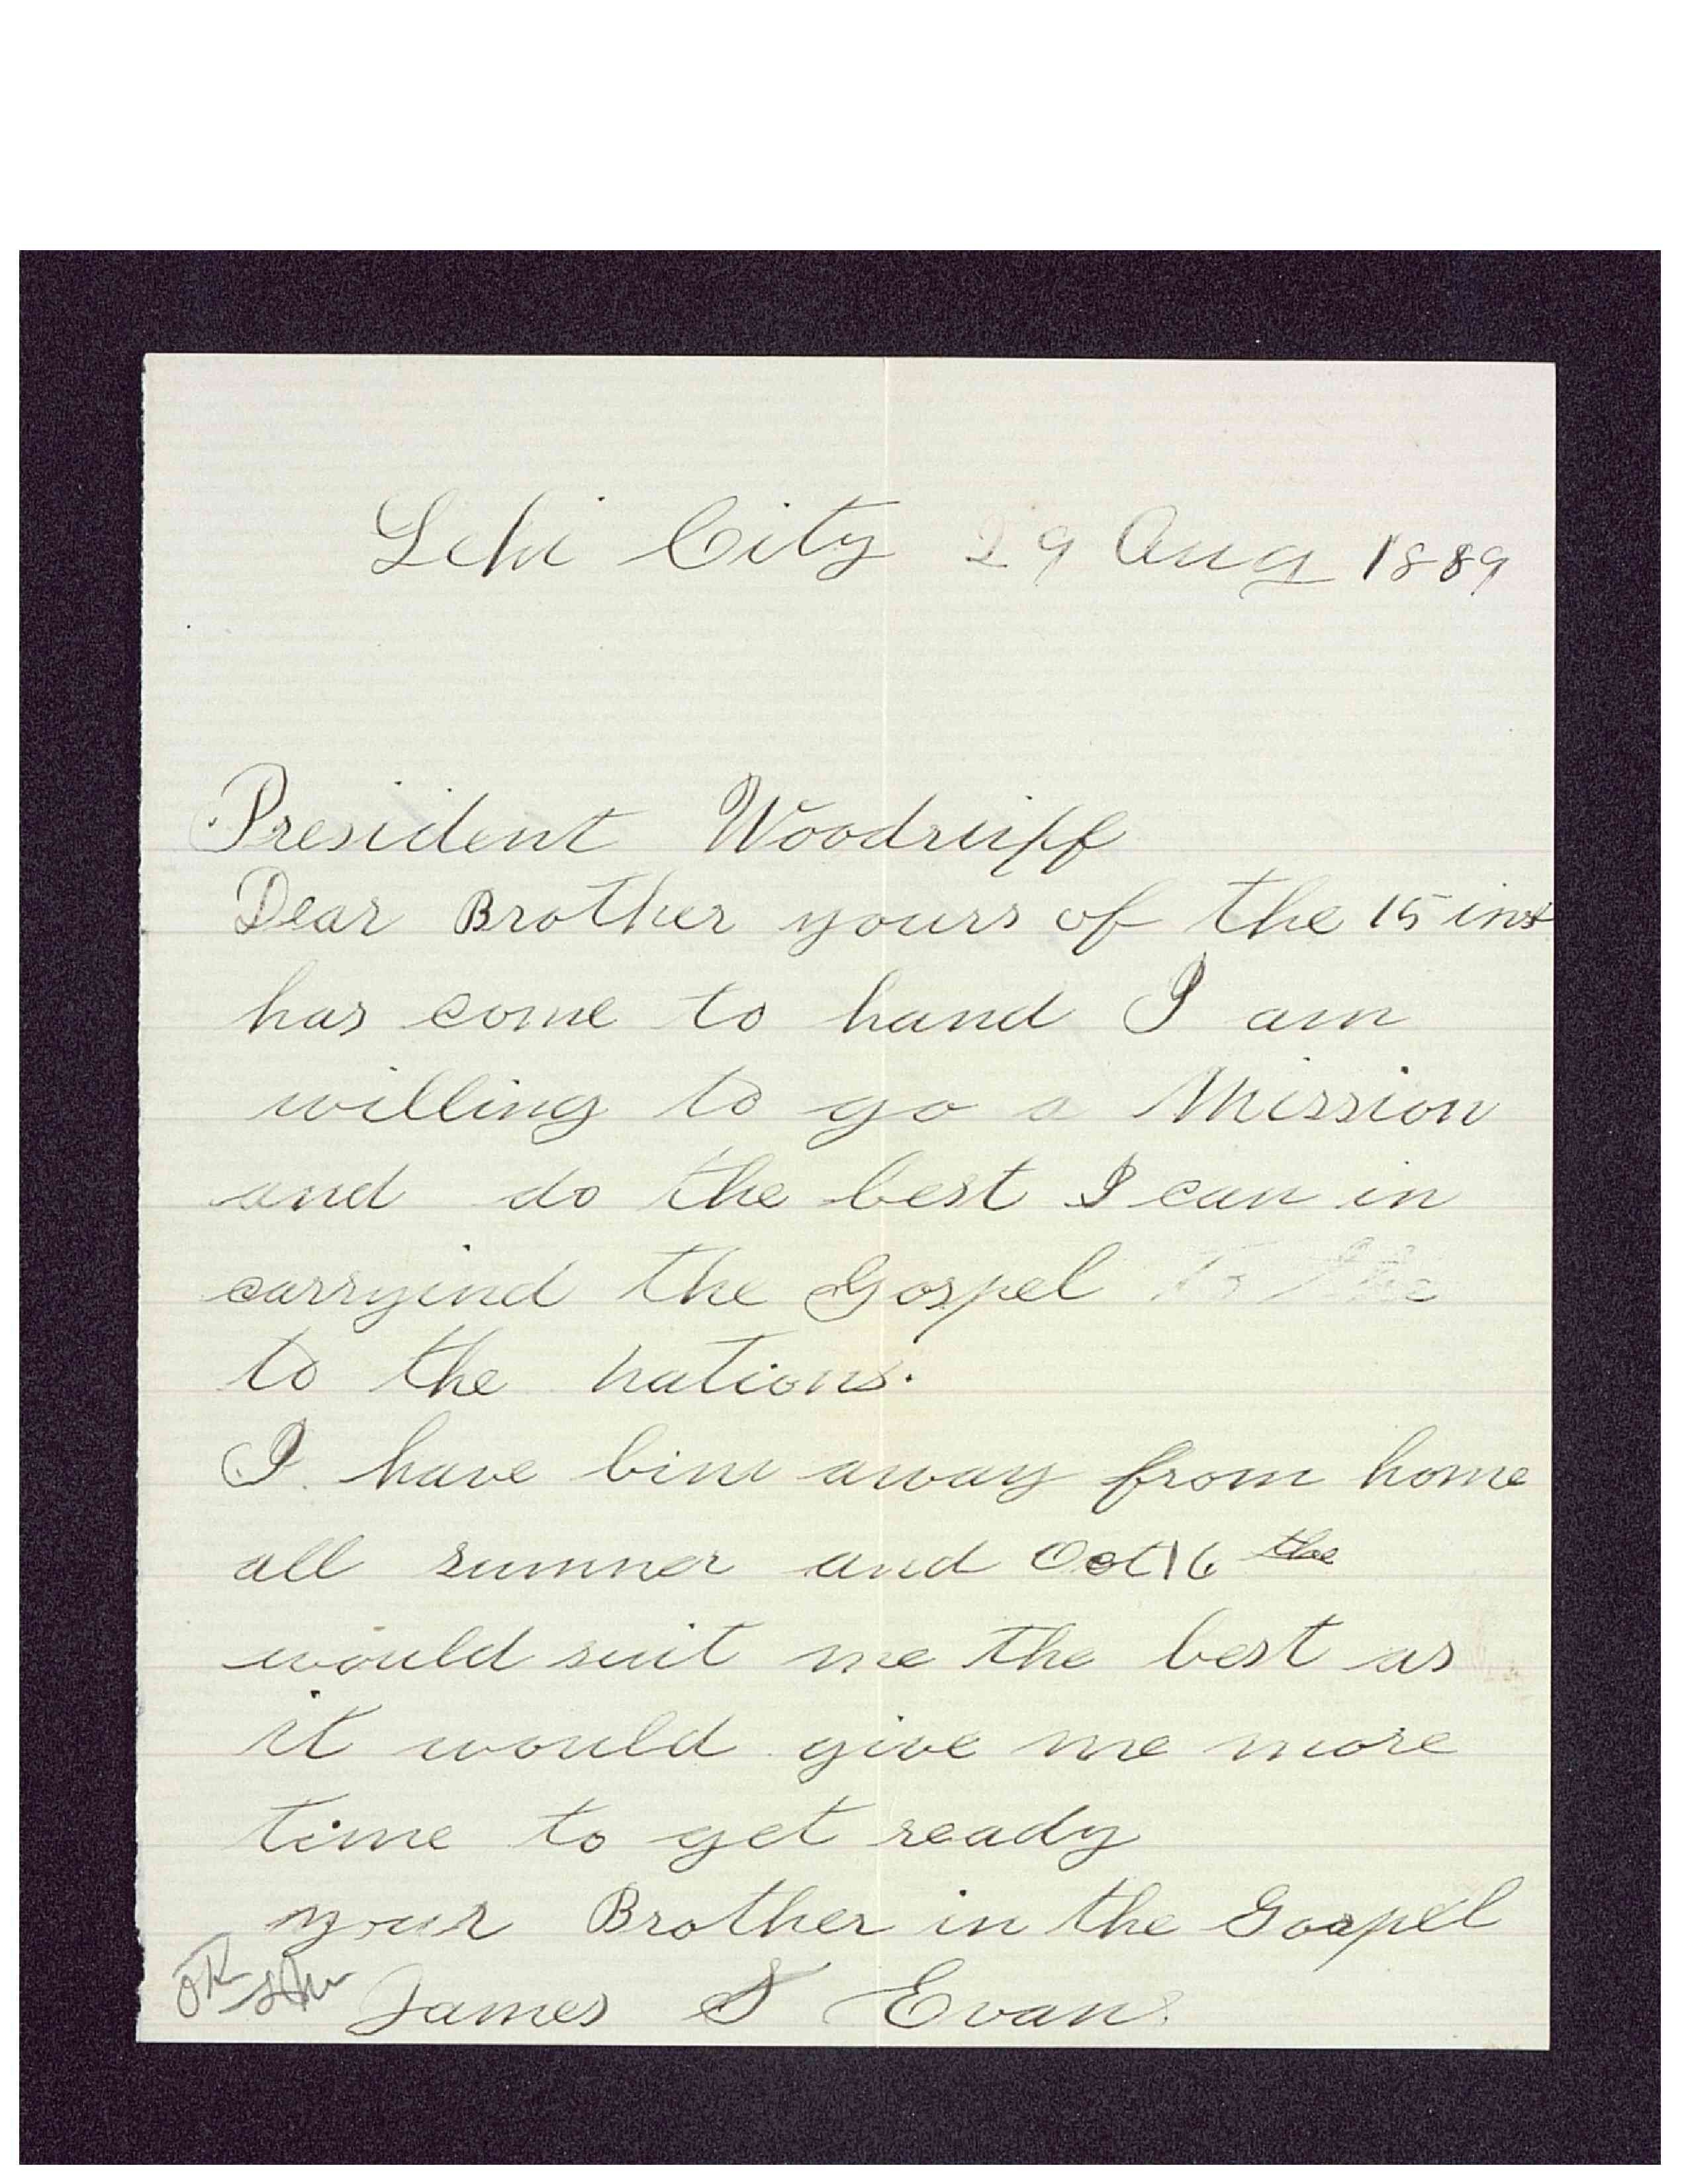 Lehi City 29 Aug 1889
President Woodruff
Dear Brother yours of the 15 inst
has come to hand I am
willing to go a Mission
and do the best I can in
carryind the Gospel to the
to the nations.
I have bine away from home
all summer and Oct 16 the
would suit me the best as
it would give me more
time to get ready
your Brother in the Gospel
OK
James S Evans